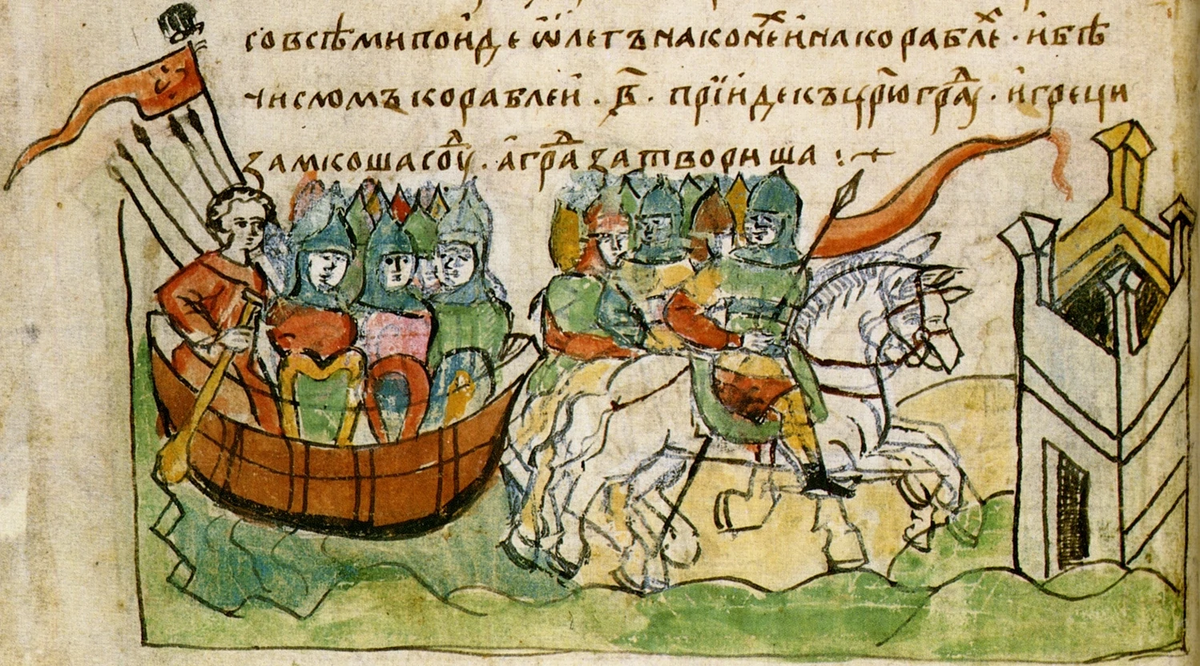 со всѣми поиде ѡлегъ на конеⷯ и на кораблеⷯ · и бѣ
числомъ кораблеи · в҃ · прїиде къ црⷭ҇юграⷣу · и греци
замкоша соⷣу · а граⷣ затвориша :~